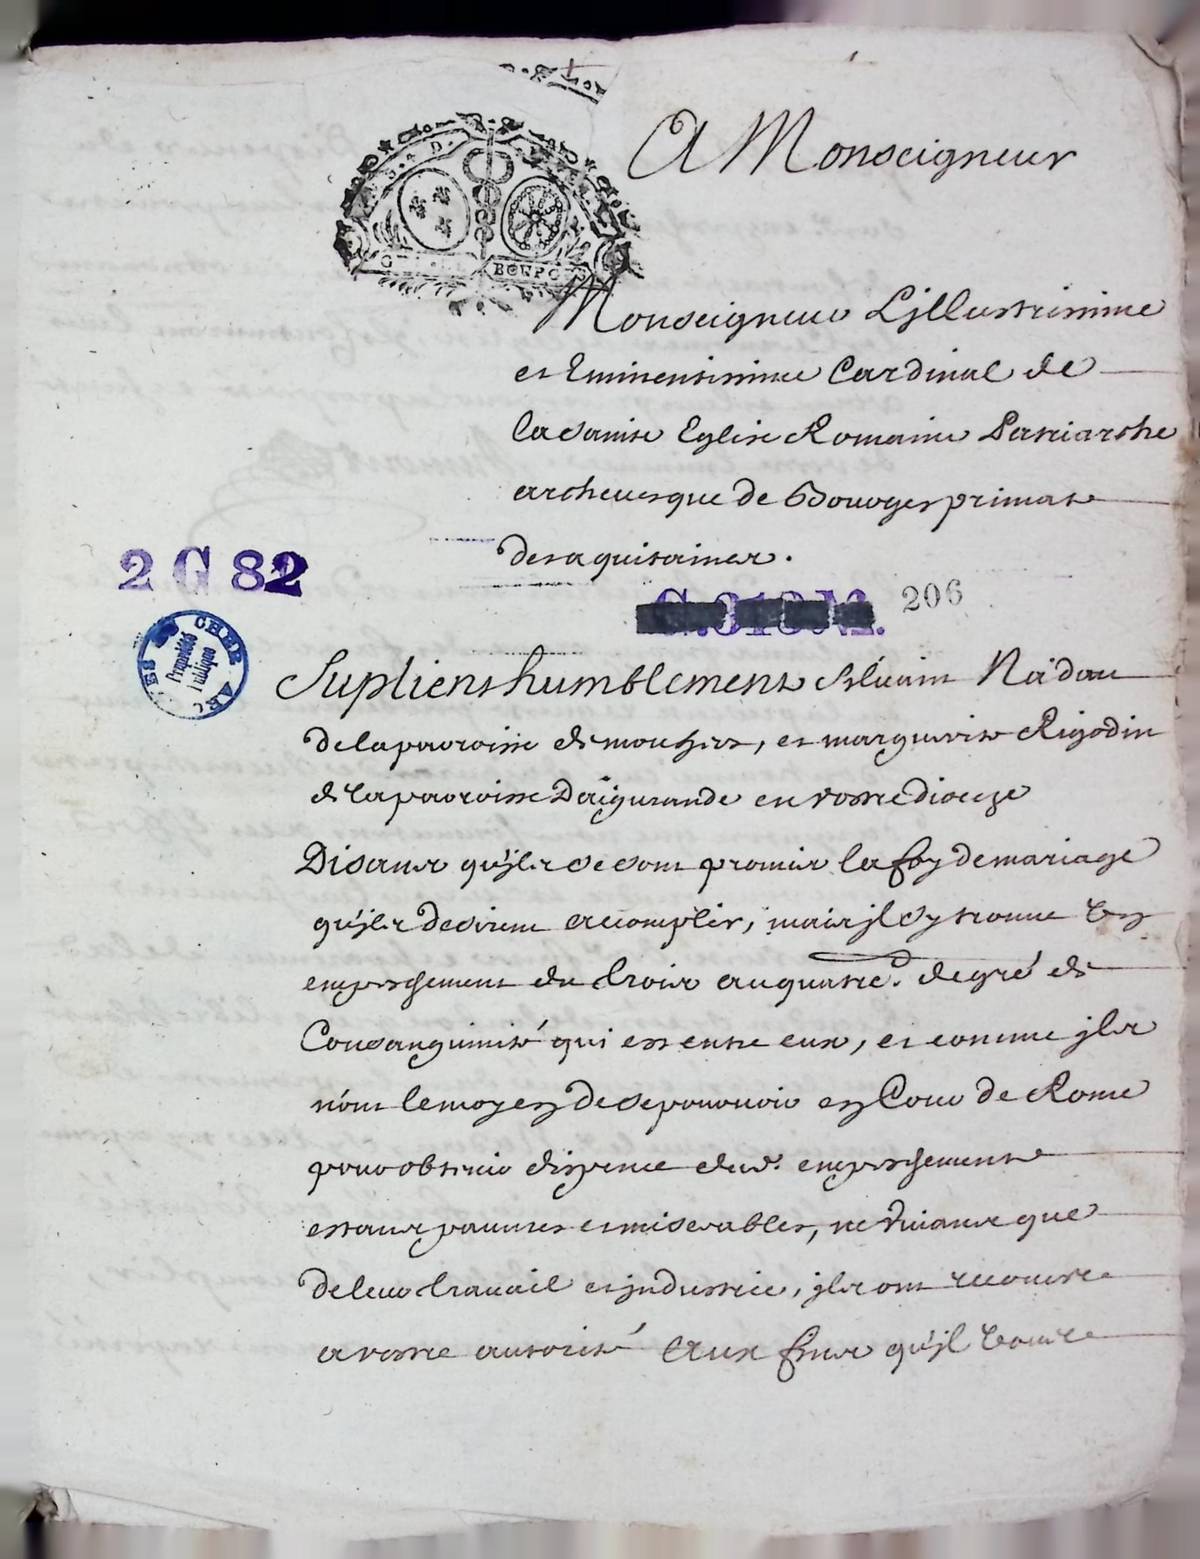 A Monseigneur
Monseigneur L'jllustrissime
et Eminentissime Cardinal de
la sainte Eglise Romaine Patriarche
archevesque de Bourges primat
des aquitaines.
2 G 82
206
CHER
Propriété
Publique
Suplient humblement Silvain Nadau
de la parroisse de mouhers, et marguerite Rigodin
de la parroisse Daigurande en vostre dioceze
Disant qu'jls se sont promis la foy de mariage
qu'jls desirent acomplir, mais jl s'y trouve un
empeschement du trois au quatre.e degré de
Consanguinité qui est entre eux, et comme jls
n'ont le moyen de se pourvoir en Cour de Rome
pour obtenir dispence dud. empeschement
estant pauvres et miserables, ne vivant que
de leur travail et jndustrie, jls ont recours
a vostre autorité Aux fins qu'jl vous